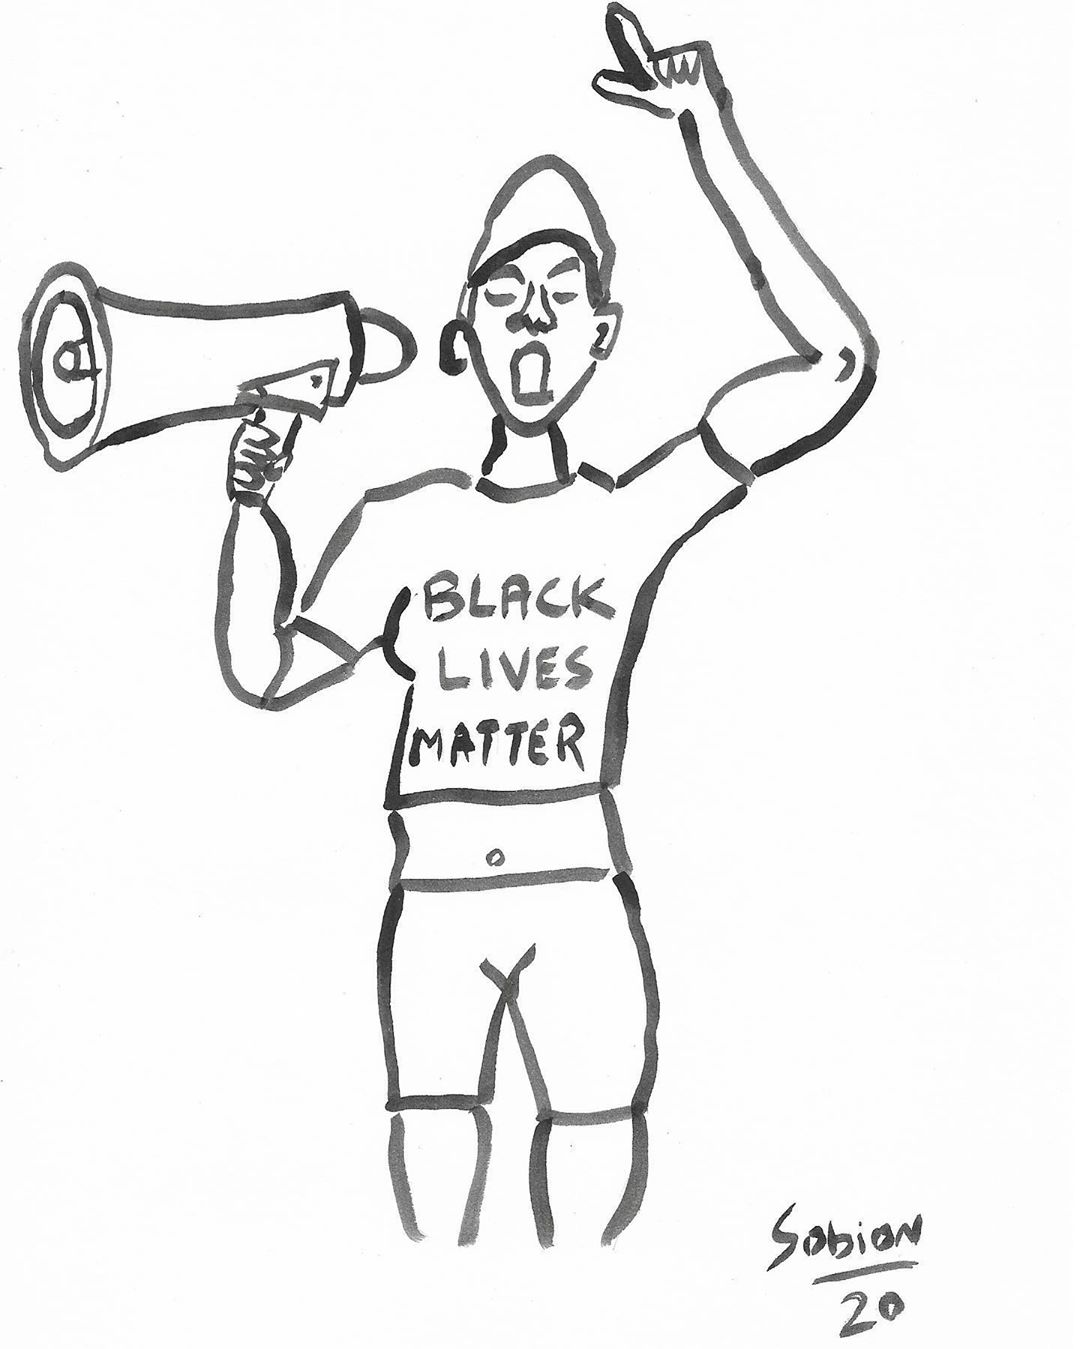 BLACK
LIVES
MATTER
Sobion
20